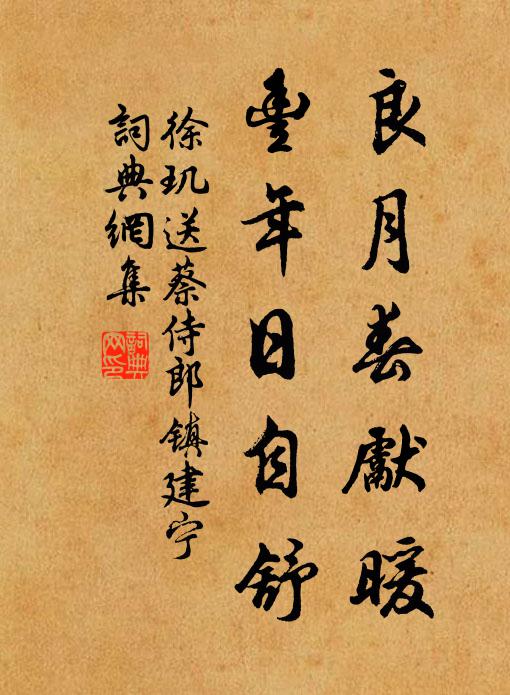 良月春獻暖
豊年日自舒
徐玑送蔡侍郎镇建宁
詞典網集
詞典网印